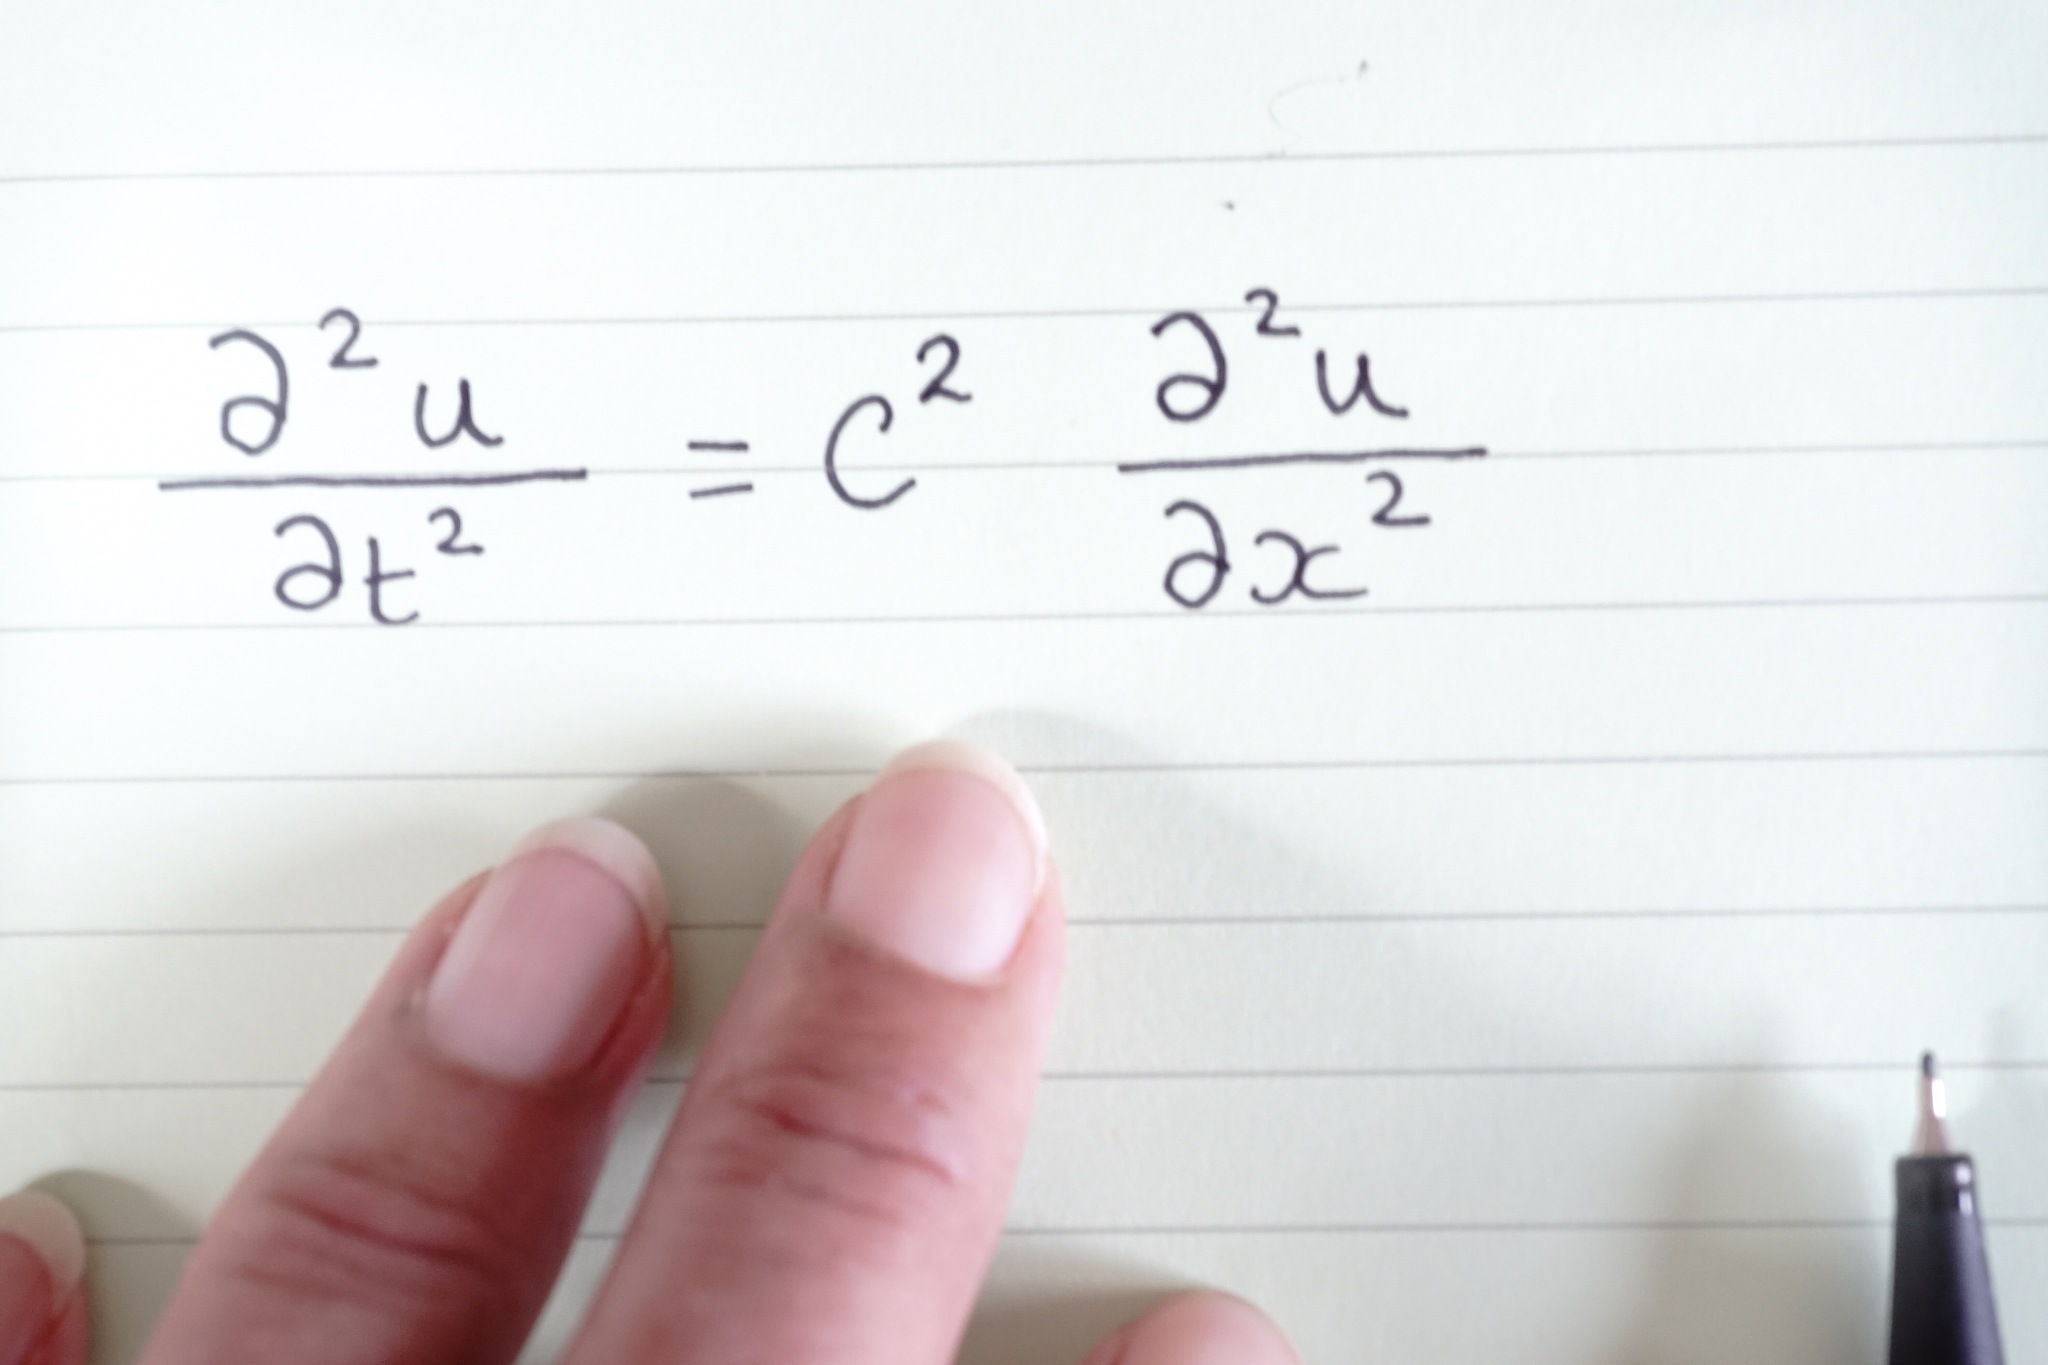 ∂²u/∂t² = C² ∂²u/∂x²